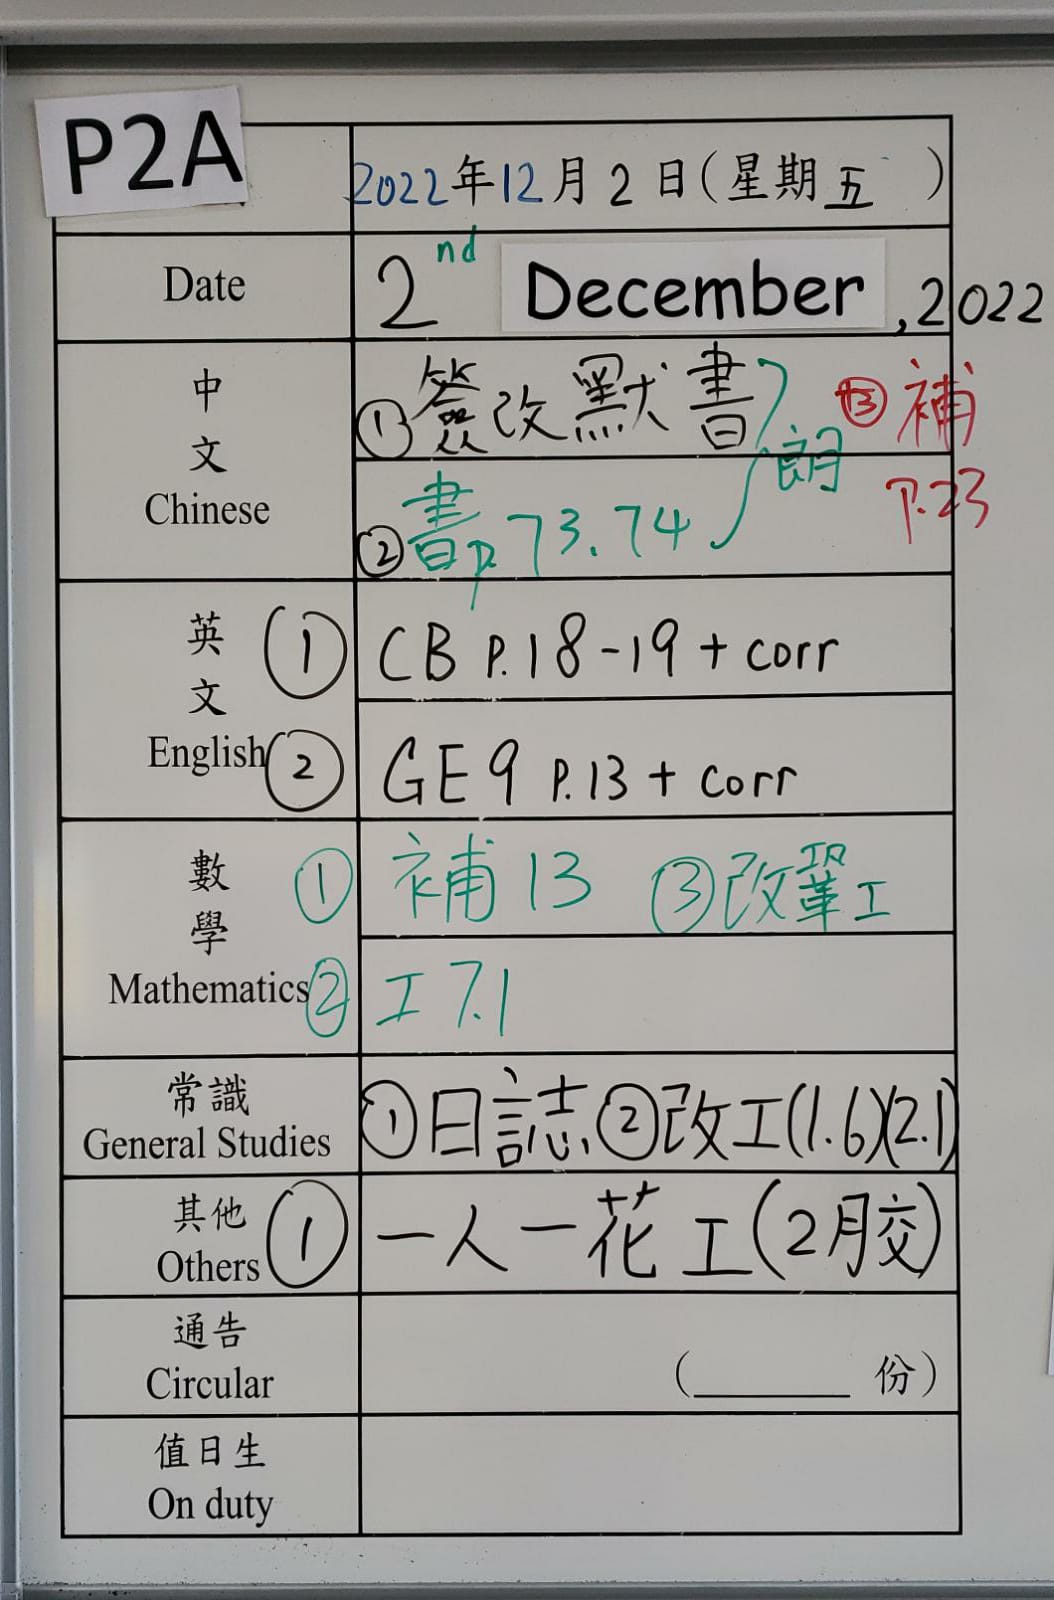 P2A
2022年12月2日(星期五)
Date
2nd December, 2022
中文
Chinese
①簽改默書 朗 ③補
②書p.73.74 P.23
英文
English
① CB P.18-19 + corr
② GE9 P.13 + corr
數學
Mathematics
① 補13 ③改鞏工
② 工7.1
常識
General Studies
①日誌 ②改工(1.6)(2.1)
其他
Others
① 一人一花工(2月交)
通告
Circular
(______份)
值日生
On duty